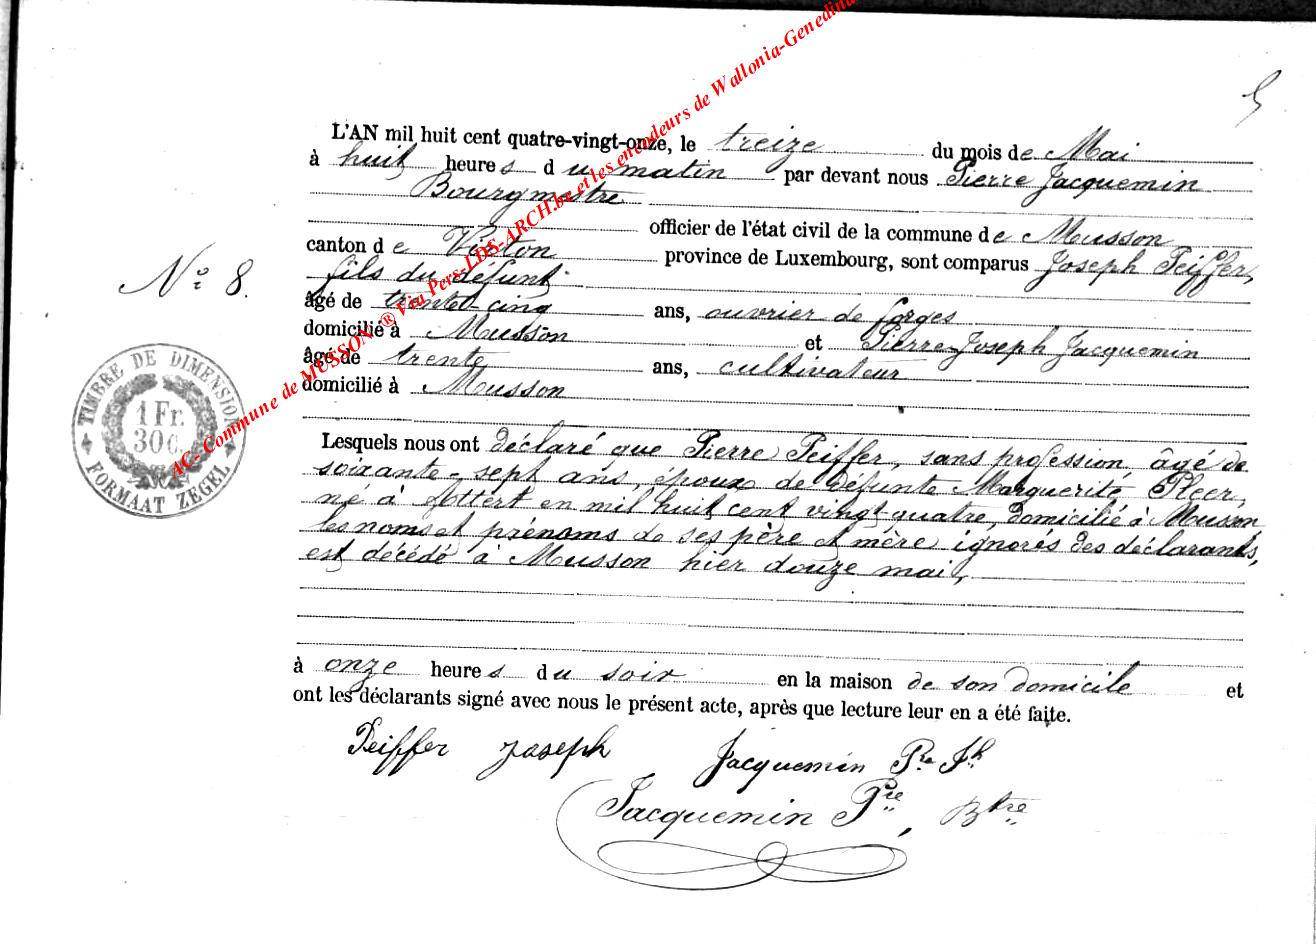 5
L'AN mil huit cent quatre-vingt-onze, le treize du mois de Mai
à huit heures du matin par devant nous Pierre Jacquemin
Bourgmestre
officier de l'état civil de la commune de Musson
canton de Virton province de Luxembourg, sont comparus Joseph Peiffer,
fils du défunt
âgé de trente cinq ans, ouvrier de forges
domicilié à Musson et Pierre-Joseph Jacquemin
âgé de trente ans, cultivateur
domicilié à Musson
Lesquels nous ont déclaré que Pierre Peiffer, sans profession, âgé de
soixante-sept ans, époux de défunte Marguerite
né à Attert en mil huit cent vingt quatre, domicilié à Musson
les noms et prénoms de ses père et mère ignorés des déclarants,
est décédé à Musson hier douze mai,
à onze heures du soir en la maison de son domicile et
ont les déclarants signé avec nous le présent acte, après que lecture leur en a été faite.
Peiffer Joseph Jacquemin Pre Jh
Jacquemin Pre, Btre
No 8.
TIMBRE DE DIMENSION
1 Fr.
30 C.
FORMAAT ZEGEL
AC- Commune de MUSSON ® Via Pers-LDS-ARCH.be et les encodeurs de Wallonia-Genedina